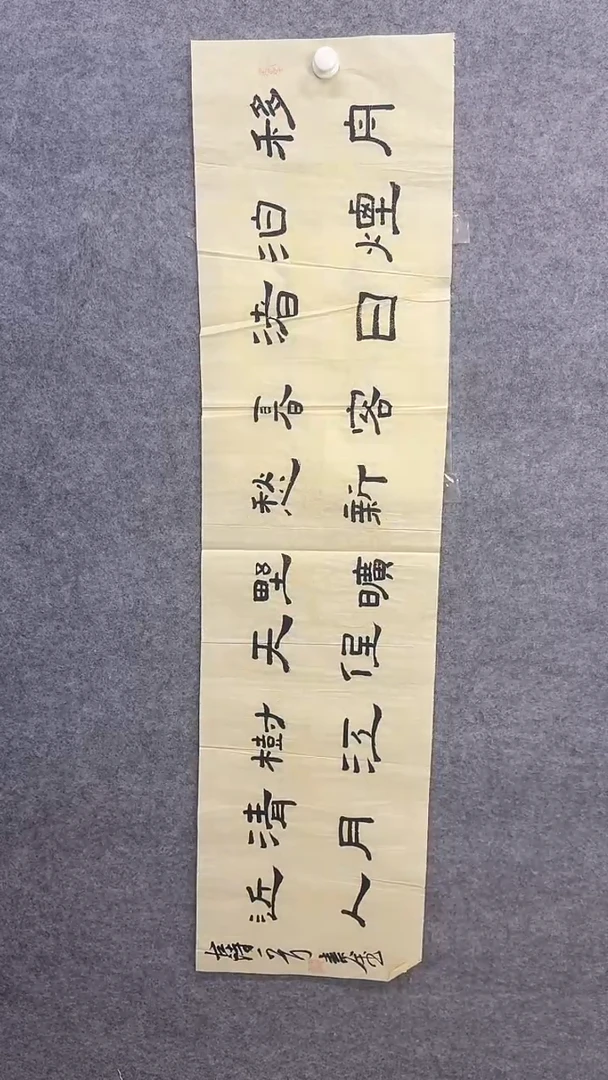 移舟
泊煙
渚日
暮客
愁新
野曠
天低
樹江
清月
近人
唐詩一首